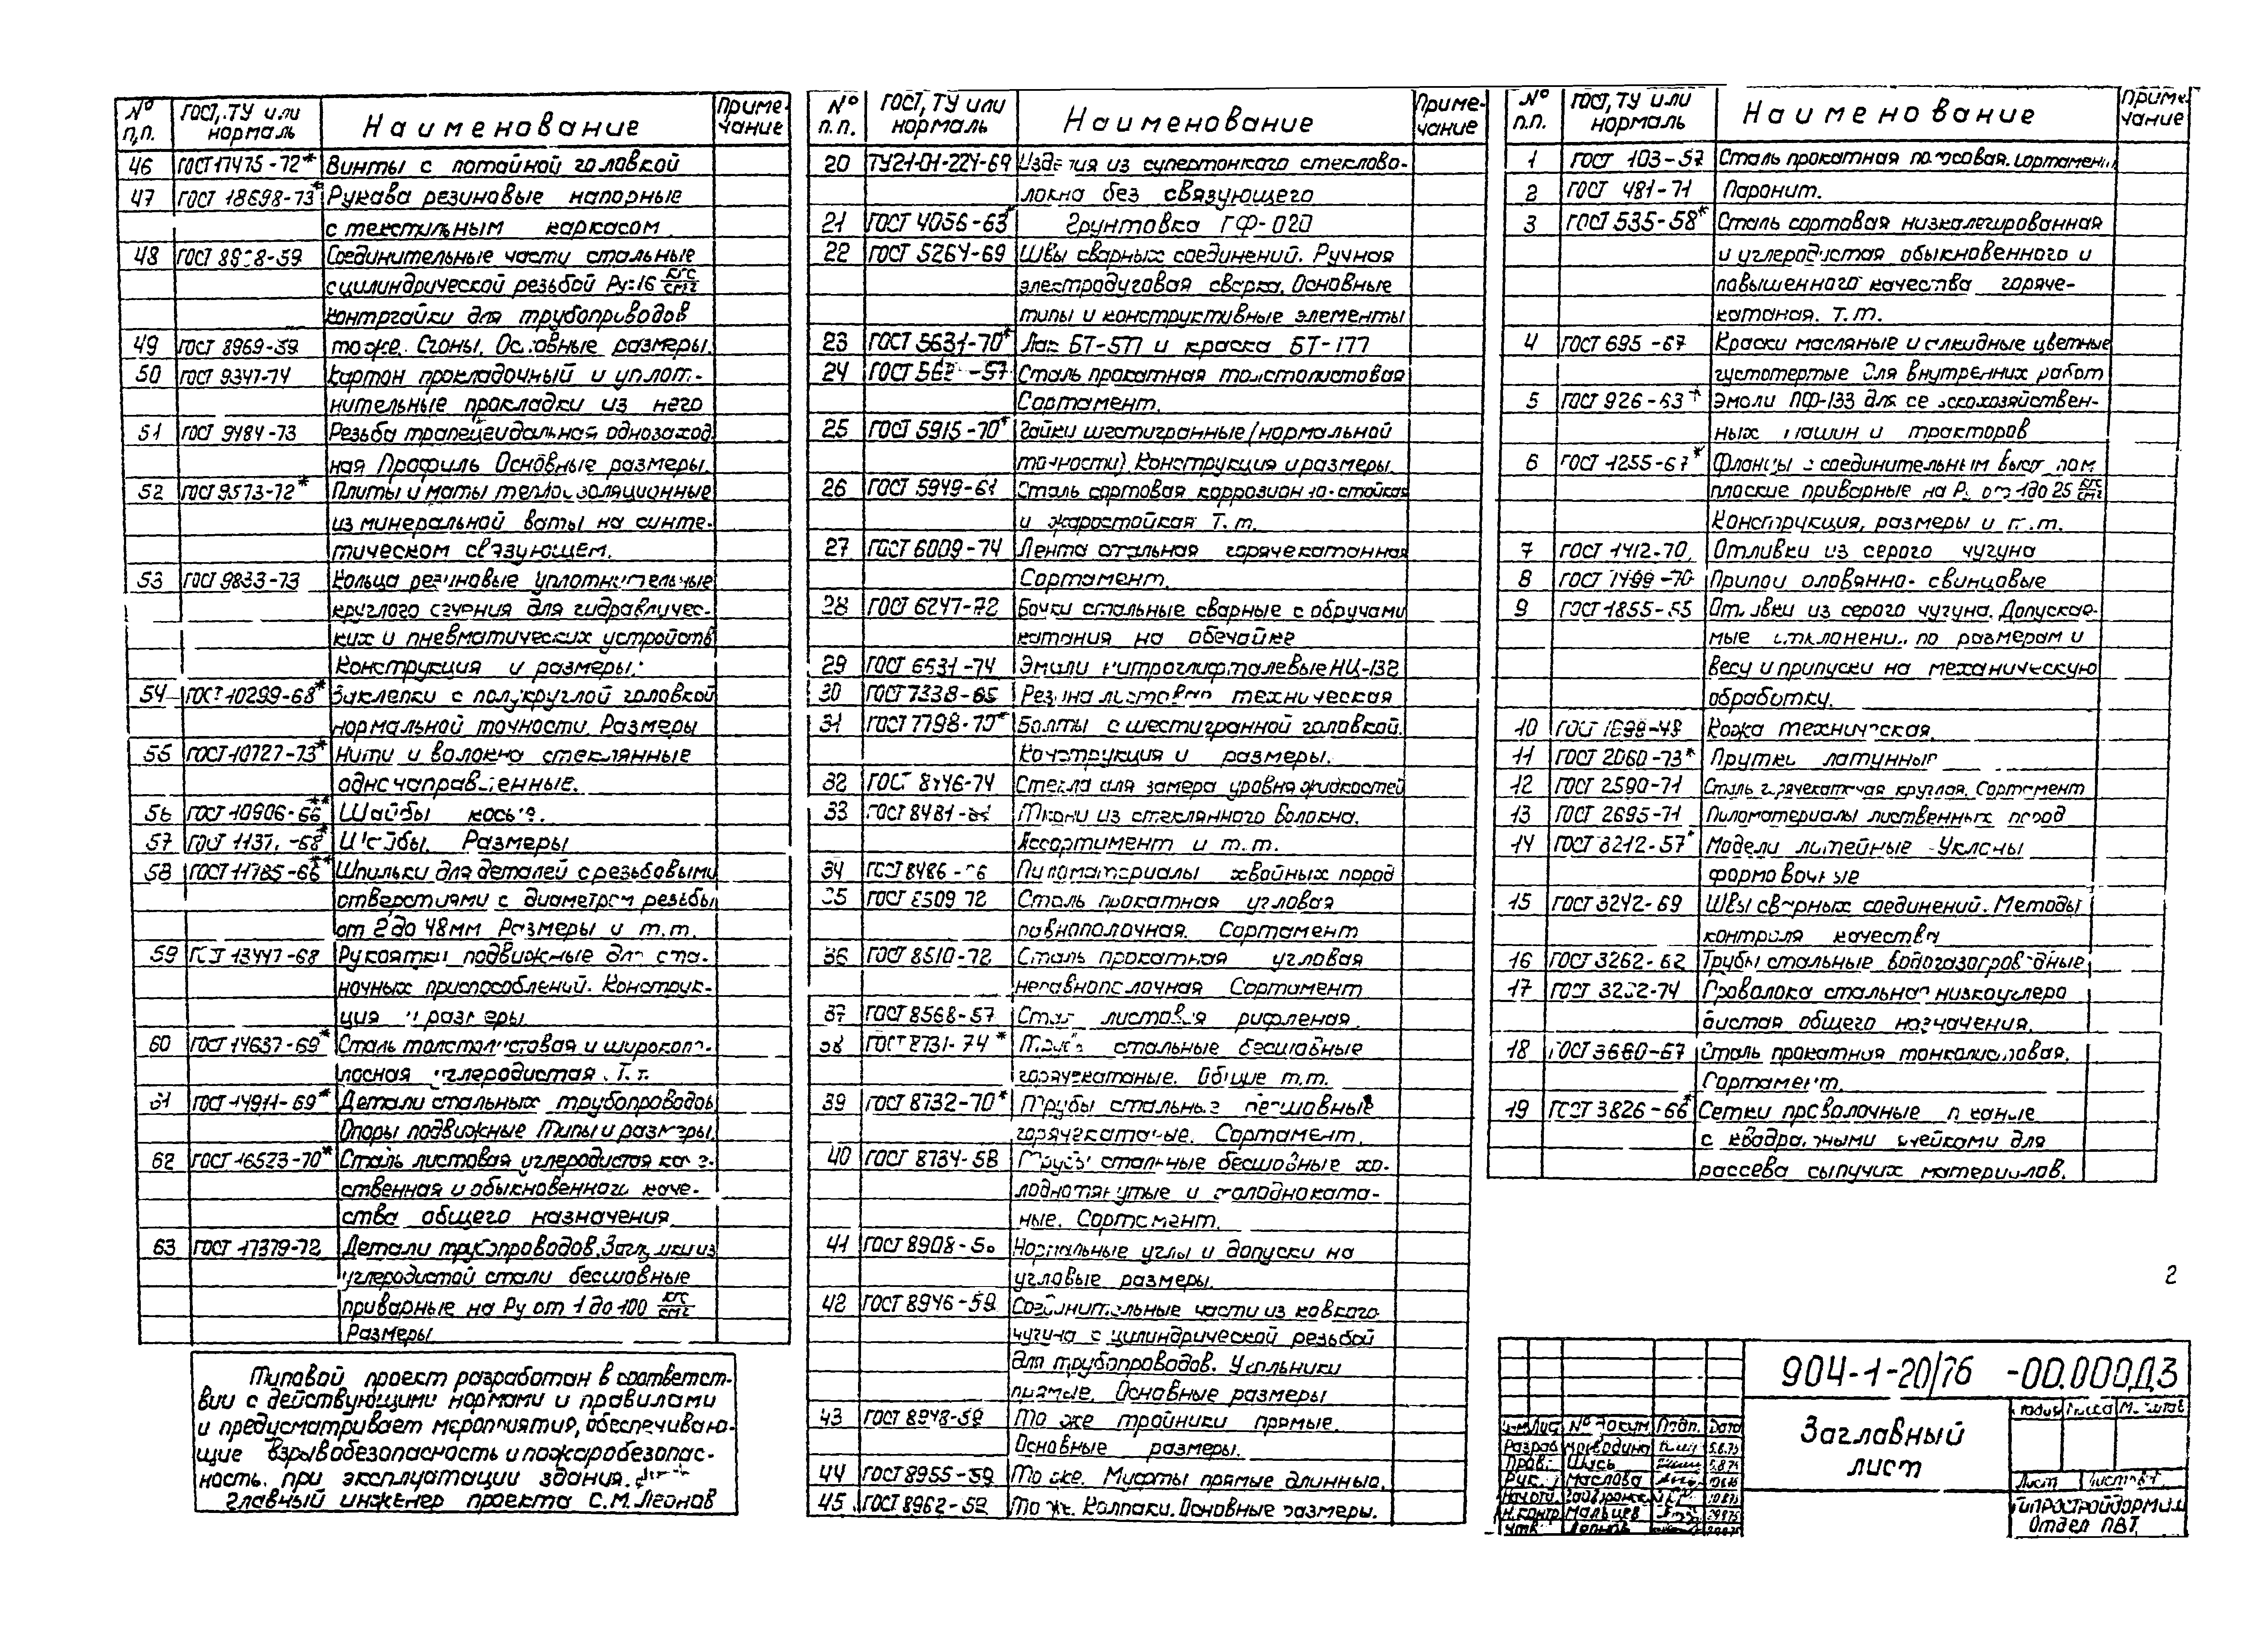 № п.п. ГОСТ, ТУ или нормаль Наименование Примечание
46 ГОСТ 17475-72* Винты с потайной головкой
47 ГОСТ 18698-73* Рукава резиновые напорные
с текстильным каркасом
48 ГОСТ 8968-59 Соединительные части стальные
с цилиндрической резьбой Ру=16 кгс/см2
Контргайки для трубопроводов
49 ГОСТ 8969-59 то же. Сгоны. Основные размеры.
50 ГОСТ 9347-74 Картон прокладочный и уплот-
нительные прокладки из него
51 ГОСТ 9484-73 Резьба трапецеидальная однозаход
ная Профиль Основные размеры.
52 ГОСТ 9573-72* Плиты и маты теплоизоляционные
из минеральной ваты на синте-
тическом связующем.
53 ГОСТ 9833-73 Кольца резиновые уплотнительные
круглого сечения для гидравличес-
ких и пневматических устройств
Конструкция и размеры.
54 ГОСТ 10299-68* Заклепки с полукруглой головкой
нормальной точности. Размеры
55 ГОСТ 10727-73* Нити и волокна стеклянные
однонаправленные.
56 ГОСТ 10906-66** Шайбы косые.
57 ГОСТ -68* Шайбы. Размеры
58 ГОСТ 11765-66** Шпильки для деталей с резьбовыми
отверстиями с диаметром резьбы
от 2 до 48мм Размеры и т.т.
59 ГОСТ 13447-68 Рукоятки подвижные для ста-
ночных приспособлений. Конструк-
ция и размеры
60 ГОСТ 14637-69* Сталь толстолистовая и широкопо-
лосная углеродистая. Т.т.
61 ГОСТ 14911-69* Детали стальных трубопроводов
Опоры подвижные Типы и размеры.
62 ГОСТ 16523-70* Сталь листовая углеродистая каче-
ственная и обыкновенного каче-
ства общего назначения
63 ГОСТ 17379-72 Детали трубопроводов. Заглушки из
углеродистой стали бесшовные
приварные на Ру от 1 до 100 кгс/см2
Размеры
Типовой проект разработан в соответст-
вии с действующими нормами и правилами
и предусматривает мероприятия, обеспечиваю-
щие взрывобезопасность и пожаробезопас-
ность. при эксплуатации здания.
Главный инженер проекта С.М. Леонов
№ п.п. ГОСТ, ТУ или нормаль Наименование Примечание
20 ТУ21-01-224-69 Изделия из супертонкого стеклово-
локна без связующего
21 ГОСТ 4056-63* Грунтовка ГФ-020
22 ГОСТ 5264-69 Швы сварных соединений. Ручная
электродуговая сварка. Основные
типы и конструктивные элементы
23 ГОСТ 5631-70* Лак БТ-577 и краска БТ-177
24 ГОСТ -57 Сталь прокатная толстолистовая
Сортамент.
25 ГОСТ 5915-70* Гайки шестигранные (нормальной
точности). Конструкция и размеры.
26 ГОСТ 5949-61 Сталь сортовая коррозионно-стойкая
и жаростойкая Т.т.
27 ГОСТ 6009-74 Лента стальная горячекатанная
Сортамент.
28 ГОСТ 6247-72 Бочки стальные сварные с обручами
катания на обечайке
29 ГОСТ 6631-74 Эмали нитроглифталевые НЦ-132
30 ГОСТ 7338-65 Резина листовая техническая
31 ГОСТ 7798-70* Болты с шестигранной головкой.
Конструкция и размеры.
32 ГОСТ 8446-74 Стекла для замера уровня жидкостей
33 ГОСТ 8481- Ткани из стеклянного волокна.
Ассортимент и т.т.
34 ГОСТ 8486-66 Пиломатериалы хвойных пород
35 ГОСТ 8509 72 Сталь прокатная угловая
равнополочная. Сортамент
36 ГОСТ 8510-72 Сталь прокатная угловая
неравнополочная Сортамент
37 ГОСТ 8568-57 Сталь листовая рифленая.
38 ГОСТ 8731-74* Трубы стальные бесшовные
горячекатаные. Общие т.т.
39 ГОСТ 8732-70* Трубы стальные бесшовные
горячекатаные. Сортамент.
40 ГОСТ 8734-58 Трубы стальные бесшовные хо-
лоднотянутые и холодноката-
ные. Сортамент.
41 ГОСТ 8908-58 Нормальные углы и допуски на
угловые размеры.
42 ГОСТ 8946-59 Соединительные части из ковкого
чугуна с цилиндрической резьбой
для трубопроводов. Угольники
прямые. Основные размеры
43 ГОСТ 8948-59 То же тройники прямые.
Основные размеры.
44 ГОСТ 8955-59 То же. Муфты прямые длинные.
45 ГОСТ 8962-59 То же. Колпаки. Основные размеры.
№ п.п. ГОСТ, ТУ или нормаль Наименование Примечание
1 ГОСТ 103-57 Сталь прокатная полосовая. Сортамент
2 ГОСТ 481-71 Паронит.
3 ГОСТ 535-58* Сталь сортовая низколегированная
и углеродистая обыкновенного и
повышенного качества горяче-
катаная. Т.т.
4 ГОСТ 695-67 Краски масляные и алкидные цветные
густотертые для внутренних работ
5 ГОСТ 926-63* Эмали ПФ-133 для сельскохозяйствен-
ных машин и тракторов
6 ГОСТ 1255-67* Фланцы с соединительным выступом
плоские приварные на Ру от 1 до 25 кгс/см2
Конструкция, размеры и т.т.
7 ГОСТ 1412-70. Отливки из серого чугуна
8 ГОСТ 1499-70 Припои оловянно-свинцовые
9 ГОСТ 1855-55 Отливки из серого чугуна. Допускае-
мые отклонения по размерам и
весу и припуски на механическую
обработку.
10 ГОСТ 1898-48 Кожа техническая.
11 ГОСТ 2060-73* Прутки латунные
12 ГОСТ 2590-71 Сталь горячекатаная круглая. Сортамент
13 ГОСТ 2695-71 Пиломатериалы лиственных пород
14 ГОСТ 3212-57* Модели литейные Уклоны
формовочные
15 ГОСТ 3242-69 Швы сварных соединений. Методы
контроля качества
16 ГОСТ 3262-62 Трубы стальные водогазопроводные
17 ГОСТ 3282-74 Проволока стальная низкоуглеро
дистая общего назначения.
18 ГОСТ 3680-57 Сталь прокатная тонколистовая.
Сортамент.
19 ГОСТ 3826-66* Сетки проволочные тканые
с квадратными ячейками для
рассева сыпучих материалов.
2
904-1-20/76 -00.000Д3
Заглавный
лист
Изм Лист № докум Подп. Дата
Разраб
Пров. Шусь
Рук. Маслова
Нач отд.
Н.контр. Мальцев
Утв. Леонов
Стадия Масса Масштаб
Лист Листов 1
Отдел ПВТ